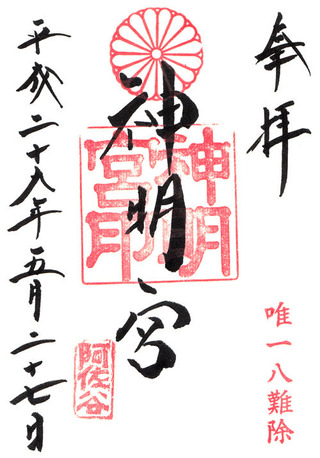 奉拝
唯一八難除
神明宮
神明宮印
阿佐谷
平成二十八年五月二十七日